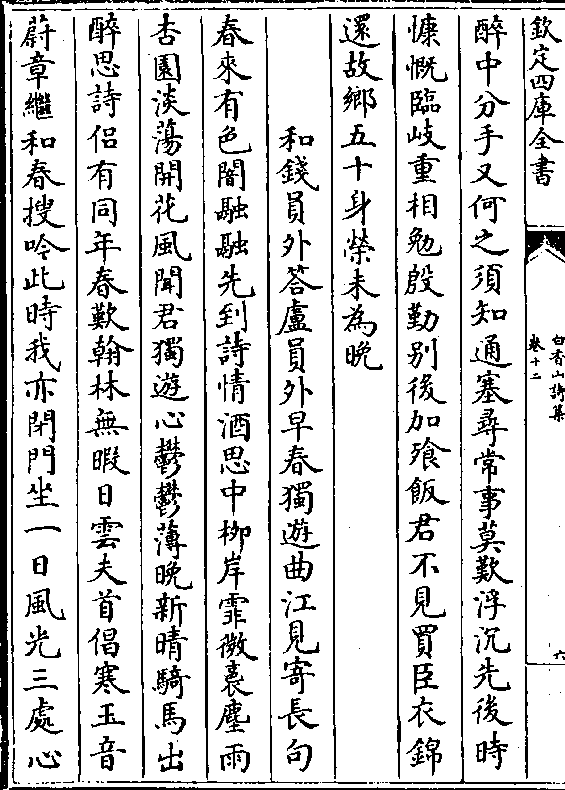 欽定四庫全書
白香山詩集
卷十二
六
醉中分手又何之須知通塞尋常事莫歎浮沉先後時
慷慨臨岐重相勉殷勤别後加飱飯君不見買臣衣錦
還故鄉五十身榮未為晚
和錢員外答盧員外早春獨遊曲江見寄長句
春來有色闇融融先到詩情酒思中栁岸霏微裛塵雨
杏園淡蕩開花風聞君獨遊心鬱鬱薄晚新晴騎馬出
醉思詩侣有同年春歎翰林無暇日雲夫首倡寒玉音
蔚章繼和春搜吟此時我亦閉門坐一日風光三處心